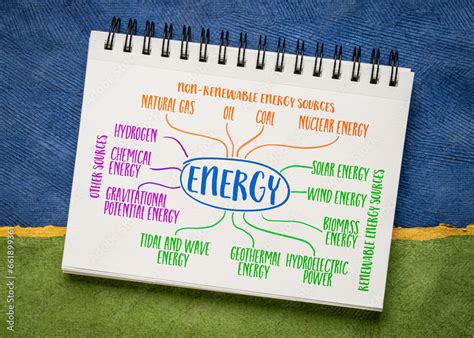 NON-RENEWABLE ENERGY SOURCES
NATURAL GAS
OIL
COAL
NUCLEAR ENERGY
OTHER SOURCES
HYDROGEN
CHEMICAL
ENERGY
GRAVITATIONAL
POTENTIAL ENERGY
ENERGY
SOLAR ENERGY
WIND ENERGY
BIOMASS
ENERGY
RENEWABLE ENERGY SOURCES
TIDAL AND WAVE
ENERGY
GEOTHERMAL
ENERGY
HYDROELECTRIC
POWER
Adobe Stock | #661899361